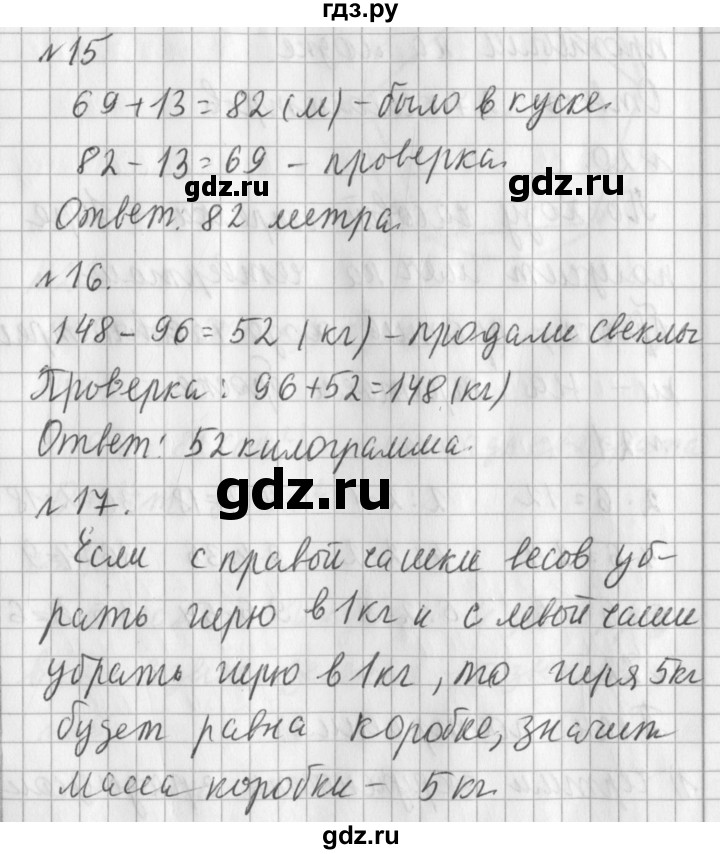 гдз.ру
№15
69+13=82(м) - было в куске.
82-13=69 - проверка.
gdz.ru
gdz.ru
Ответ. 82 метра.
№16.
148-96=52 (кг) - продали свеклы
Проверка: 96+52=148(кг)
Ответ: 52 килограмма.
gdz.ru
№17.
Если с правой чашки весов уб-
рать гирю в 1кг и с левой чаши
убрать гирю в 1кг, то гиря 5кг
будет равна коробке, значит
gdz.ru
масса коробки - 5кг.
gdz.ru